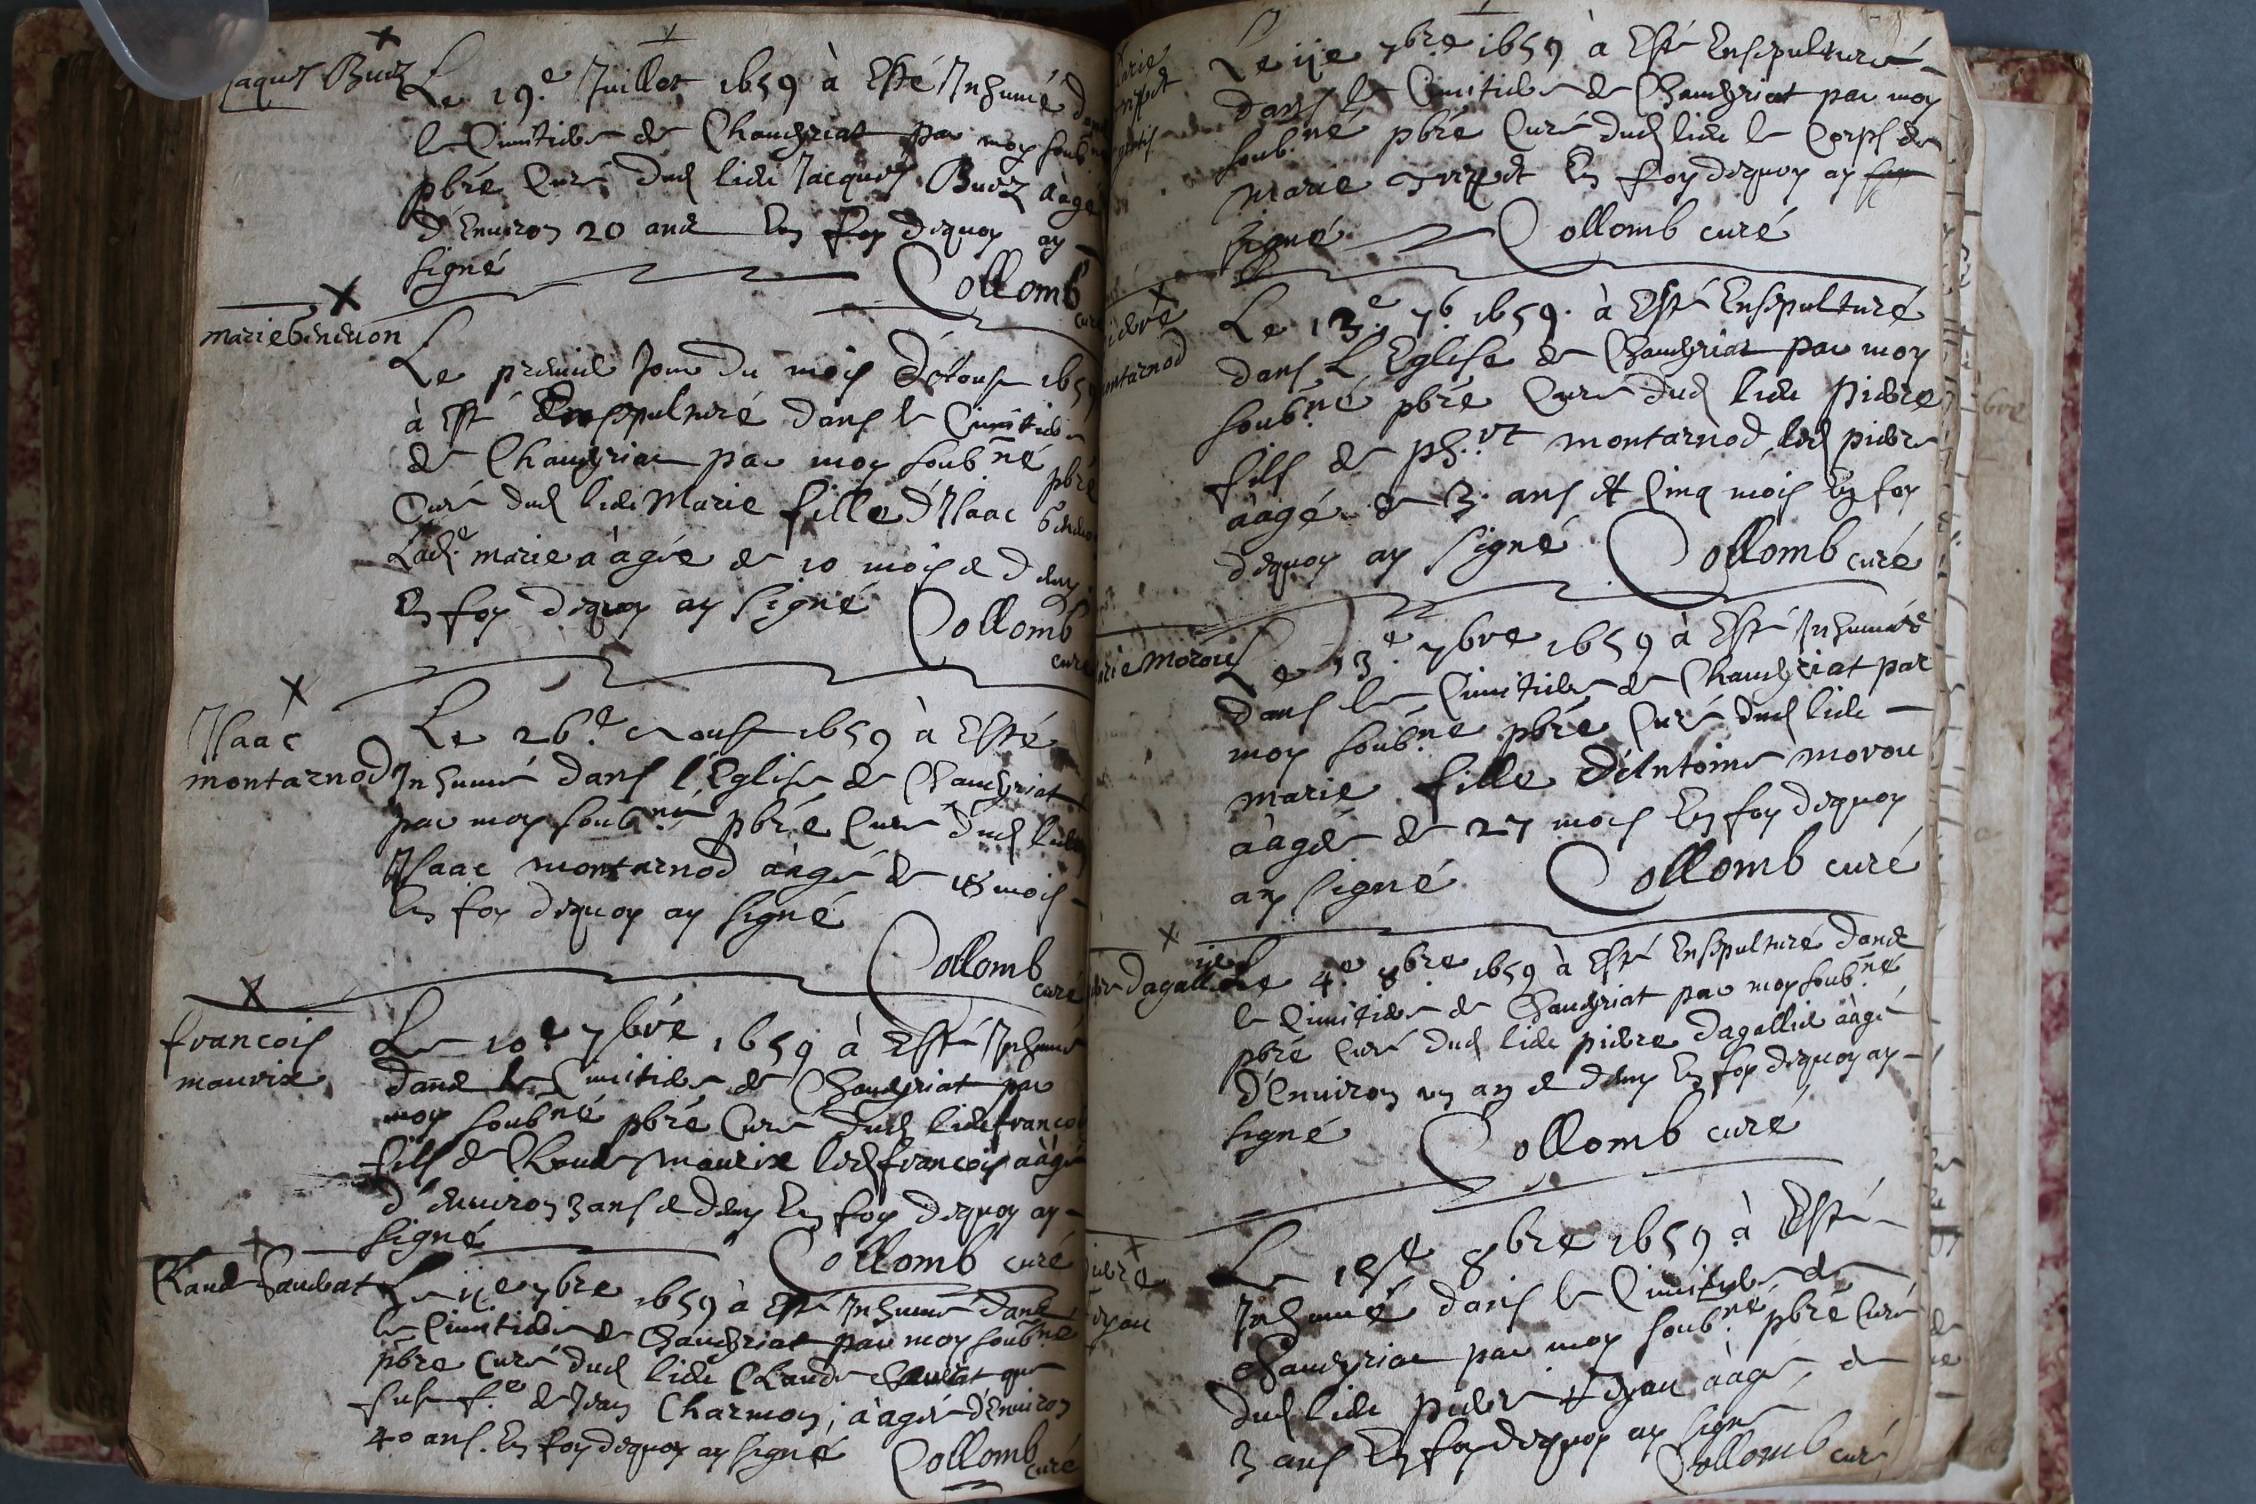 Jaques Buez
Le 19.e Juillet 1659 à Esté Inhumé dans
le Cimitiere de Chaveyriat par moy soub.né
pbré Curé dud lieu Jacques Buez aàgé
d'Environ 20 ans En foy dequoy ay
signé
Collomb
curé
marie
Le premier Jour du mois d'Aoust 1659
à Esté Ensepulturé dans le Cimitiere
de Chaveyriat par moy soub.né pbré
Curé dud lieu Marie fille d'Isaac
Lad.e marie aàgée de 10 mois e demy
En foy dequoy ay signé
Collomb
curé
Isaac
montarnod
Le 26.e Aoust 1659 à Esté
Inhumé dans l'Eglise de Chaveyriat
par moy soub.né pbré Curé dud lieu
Isaac montarnod aàgé de 18 mois
En foy dequoy ay signé
Collomb
curé
francois
maurix
Le 10.e 7bre 1659 à Esté Inhumé
dans le Cimitiere de Chaveyriat par
moy soubné pbré Curé dud lieu francois
fils de Claude maurix led francois aàgé
d'Environ 3 ans e demy En foy dequoy ay
signé
Collomb curé
Claude
Le 11e 7bre 1659 à Esté Inhumé dans
le Cimitiere de Chaveyriat par moy soub.né
pbre Curé dud lieu Claude que
fust f.e de Jean Charmon, aàgée d'Environ
40 ans. En foy dequoy ay signé
Collomb
curé
Marie
Le 11e 7bre 1659 à Esté Ensepulturé
dans le Cimitiere de Chaveyriat par moy
soub.né pbré Curé dud lieu le Corps de
marie En foy dequoy ay
signé
Collomb curé
pierre
montarnod
Le 13.e 7b. 1659. à Esté Ensepulturé
dans L'Eglise de Chaveyriat par moy
soub.né pbré Curé dud lieu pierre
fils de ph.rt montarnod, led pierre
aàgé de 3 ans et Cinq mois En foy
dequoy ay signé
Collomb curé
marie Morou
Le 13.e 7bre 1659 à Esté Inhumée
dans le Cimitiere de Chaveyriat par
moy soub.né pbré Curé dud lieu
marie fille d'Antoine morou
aàgée de 27 mois En foy dequoy
ay signé
Collomb curé
pierre Dagallier
Le 4.e 8bre 1659 à Esté Ensepulturé dans
le Cimitiere de Chaveyriat par moy soub.né
pbré Curé dud lieu pierre dagallier aàgé
d'Environ un an e demy En foy dequoy ay
signé
Collomb curé
pierre
Le 8bre 1659 à Esté
Inhumé dans le Cimitiere de
Chaveyriat par moy soub.né pbré Curé
dud lieu pierre aàgé de
3 ans En foy dequoy ay signé
Collomb curé